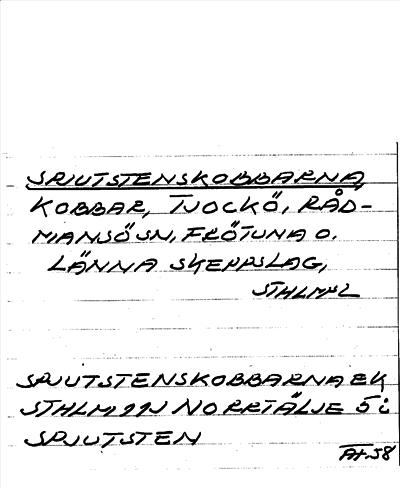 SPJUTSTENSKOBBARNA,
KOBBAR, TJOCKÖ, RÅD-
MANSÖ SN, FRÖTUNA O.
LÄNNA SKEPPSLAG,
STHLMS L
SPJUTSTENSKOBBARNA EK
STHLM 11J NORRTÄLJE 5 i
SPJUTSTEN